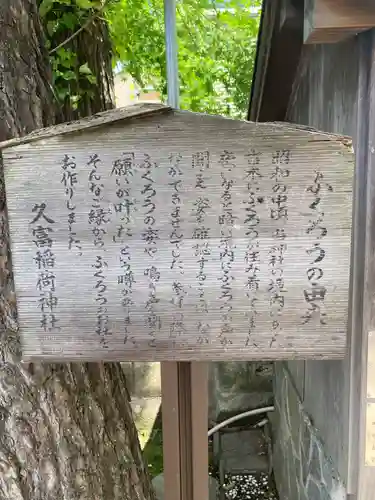 ふくろうの由来
昭和の中頃、当神社の境内にあった
古木にふくろうが住み着いていました。
夜になると暗い境内にふくろうの声が
聞こえ、姿を確認することはなか
なかできませんでした。参拝の際に
ふくろうの姿や、鳴り声を聞くと
「願いが叶った」という噂がありました
そんなご縁から、ふくろうのお社を
お作りしました。
久富稲荷神社